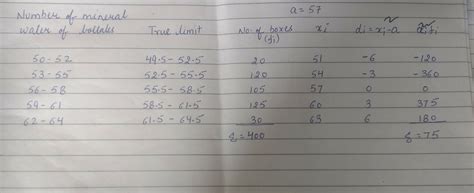 a = 57
Number of mineral
water of bottales True limit No. of boxes (fi) xi di = xi - a difi
50 - 52 49.5 - 52.5 20 51 -6 -120
53 - 55 52.5 - 55.5 120 54 -3 -360
56 - 58 55.5 - 58.5 105 57 0 0
59 - 61 58.5 - 61.5 125 60 3 375
62 - 64 61.5 - 64.5 30 63 6 180
= 400 = 75